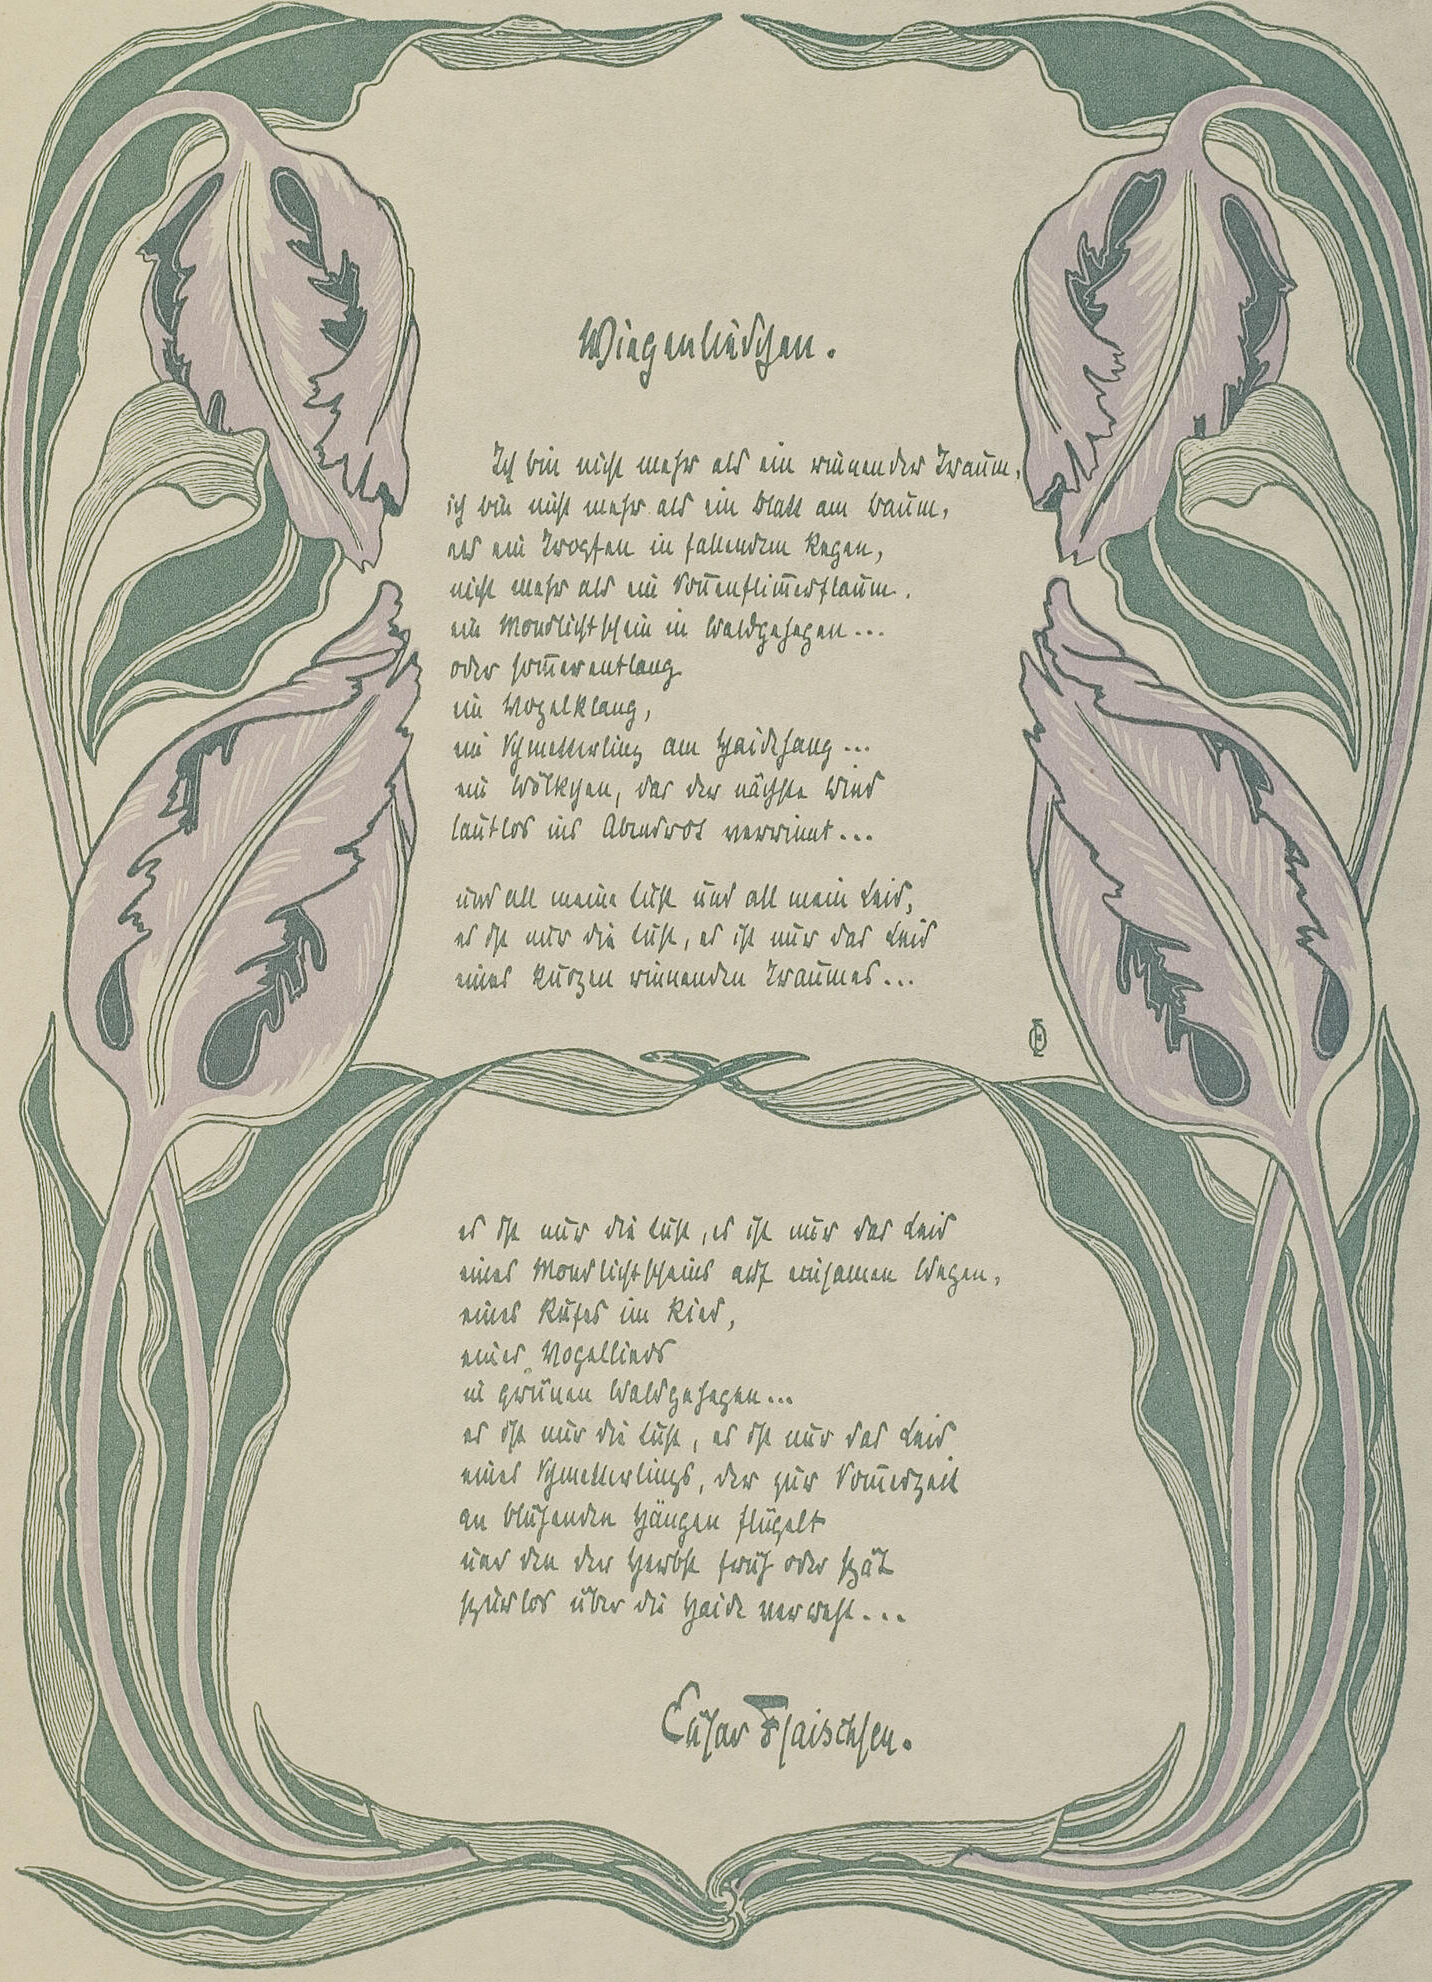 Wiegenliedchen.
Ich bin nicht mehr als ein rinnender Traum,
ich bin nicht mehr als ein Blatt am Baum,
als ein Tropfen in fallendem Regen,
nicht mehr als ein Soñenflim̃erflaum.
ein Mondlichtschein in Waldgehegen...
oder som̃erentlang
ein Vogelklang,
ein Schmetterling am Haidehang...
ein Wölkchen, das der nächste Wind
lautlos ins Abendrot verrinnt...
und all meine Lust und all mein Leid,
es ist nur die Lust, es ist nur das Leid
eines kurzen rinnenden Traumes...
es ist nur die Lust, es ist nur das Leid
eines Mondlichtscheins auf einsamen Wegen,
eines Rufes im Ried,
eines Vogellieds
in grünen Waldgehegen...
es ist nur die Lust, es ist nur das Leid
eines Schmetterlings, der zur Som̃erzeit
an blühenden Hängen flügelt
und den der Herbst früh oder spät
spurlos über die Haide verweht...
Cäsar Flaischlen.